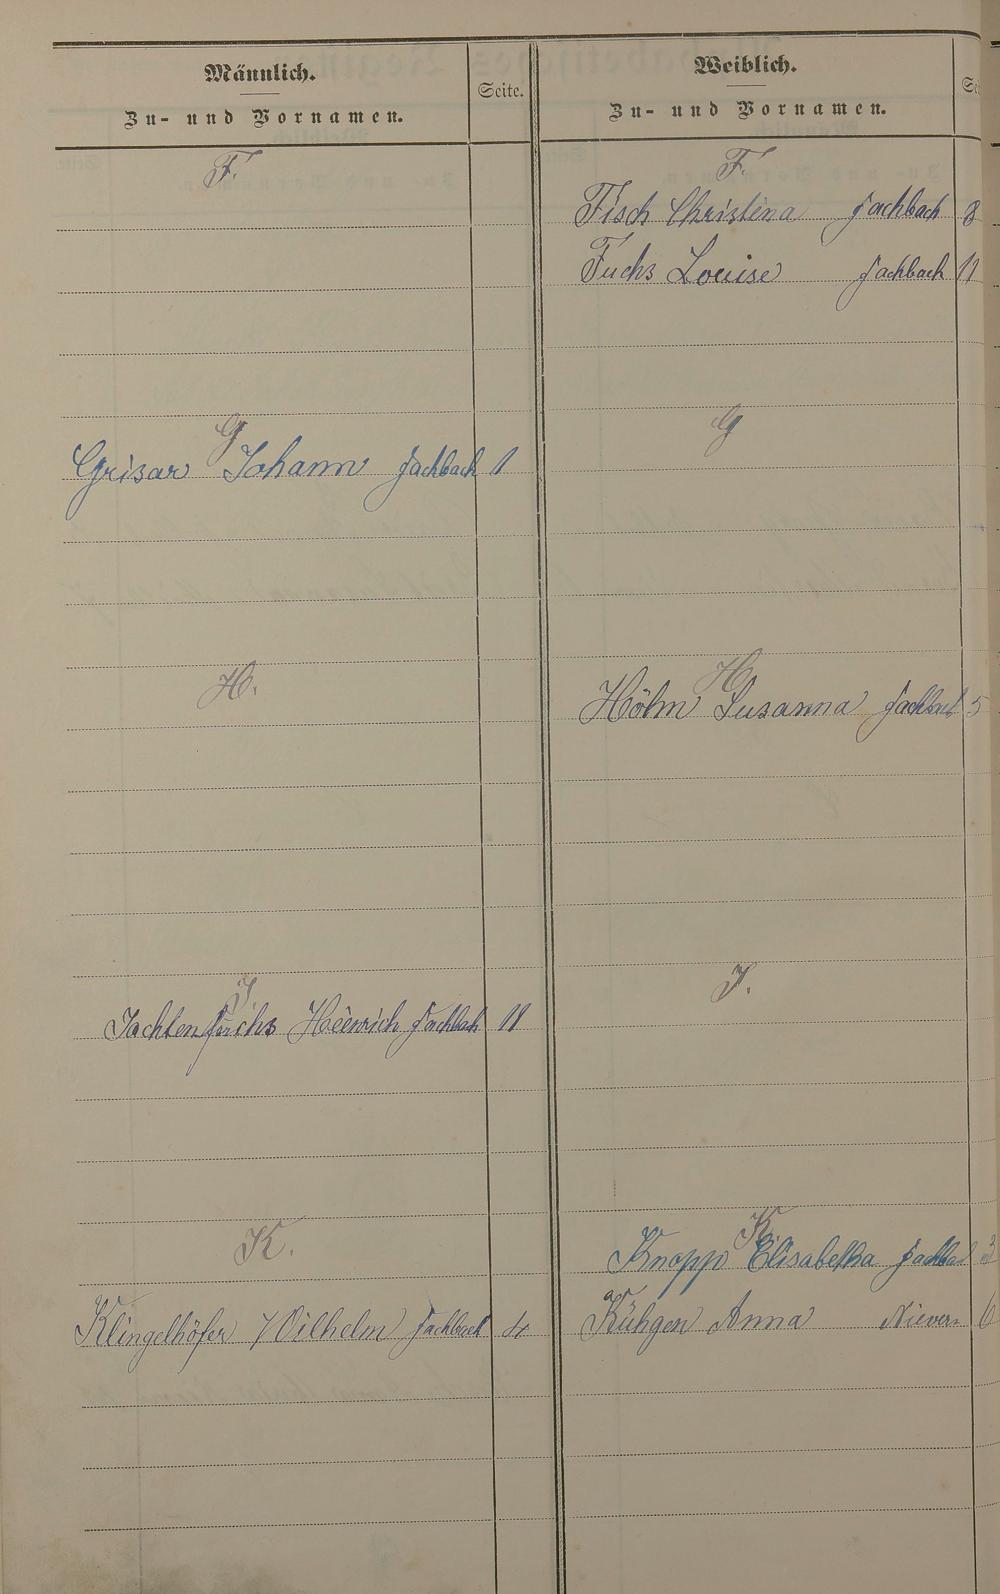 Männlich.
Zu- und Vornamen.
Seite.
F.
G
Grisar Johann Fachbach 1
H.
J.
Jachtenfuchs Heinrich Fachbach 11
K.
Klingelhöfer Wilhelm Fachbach 4
Weiblich.
Zu- und Vornamen.
F.
Fisch Christina Fachbach 8
Fuchs Louise Fachbach 11
G
H
Höhn Susanna Fachbach 5
J.
K.
Knopp Elisabetha Fachbach 3
Kühgen Anna Nievern 6